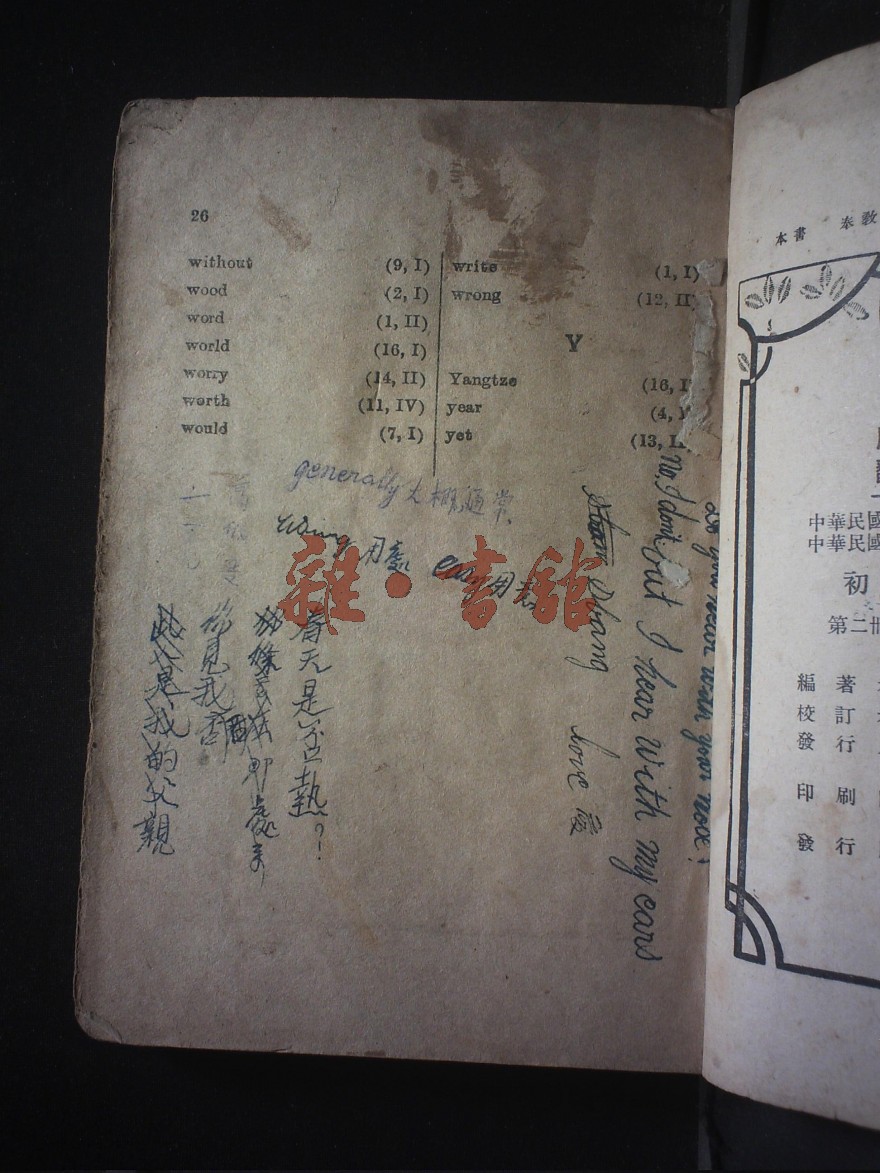 26
without (9, I)
wood (2, I)
word (1, II)
world (16, I)
worry (14, II)
worth (11, IV)
would (7, I)
write (1, I)
wrong (12, II)
Y
Yangtze (16, I
year (4,
yet (13, II
generally 大概通常
用處
用
no. I don't but I hear with my ears
you hear with your nose?
love 愛
春天是不是熱?
你見我否
此人是我的父親
雜·書館
本書 奉教
中華民國
中華民國
初
第二冊
編著
校訂
發行
印刷
發行